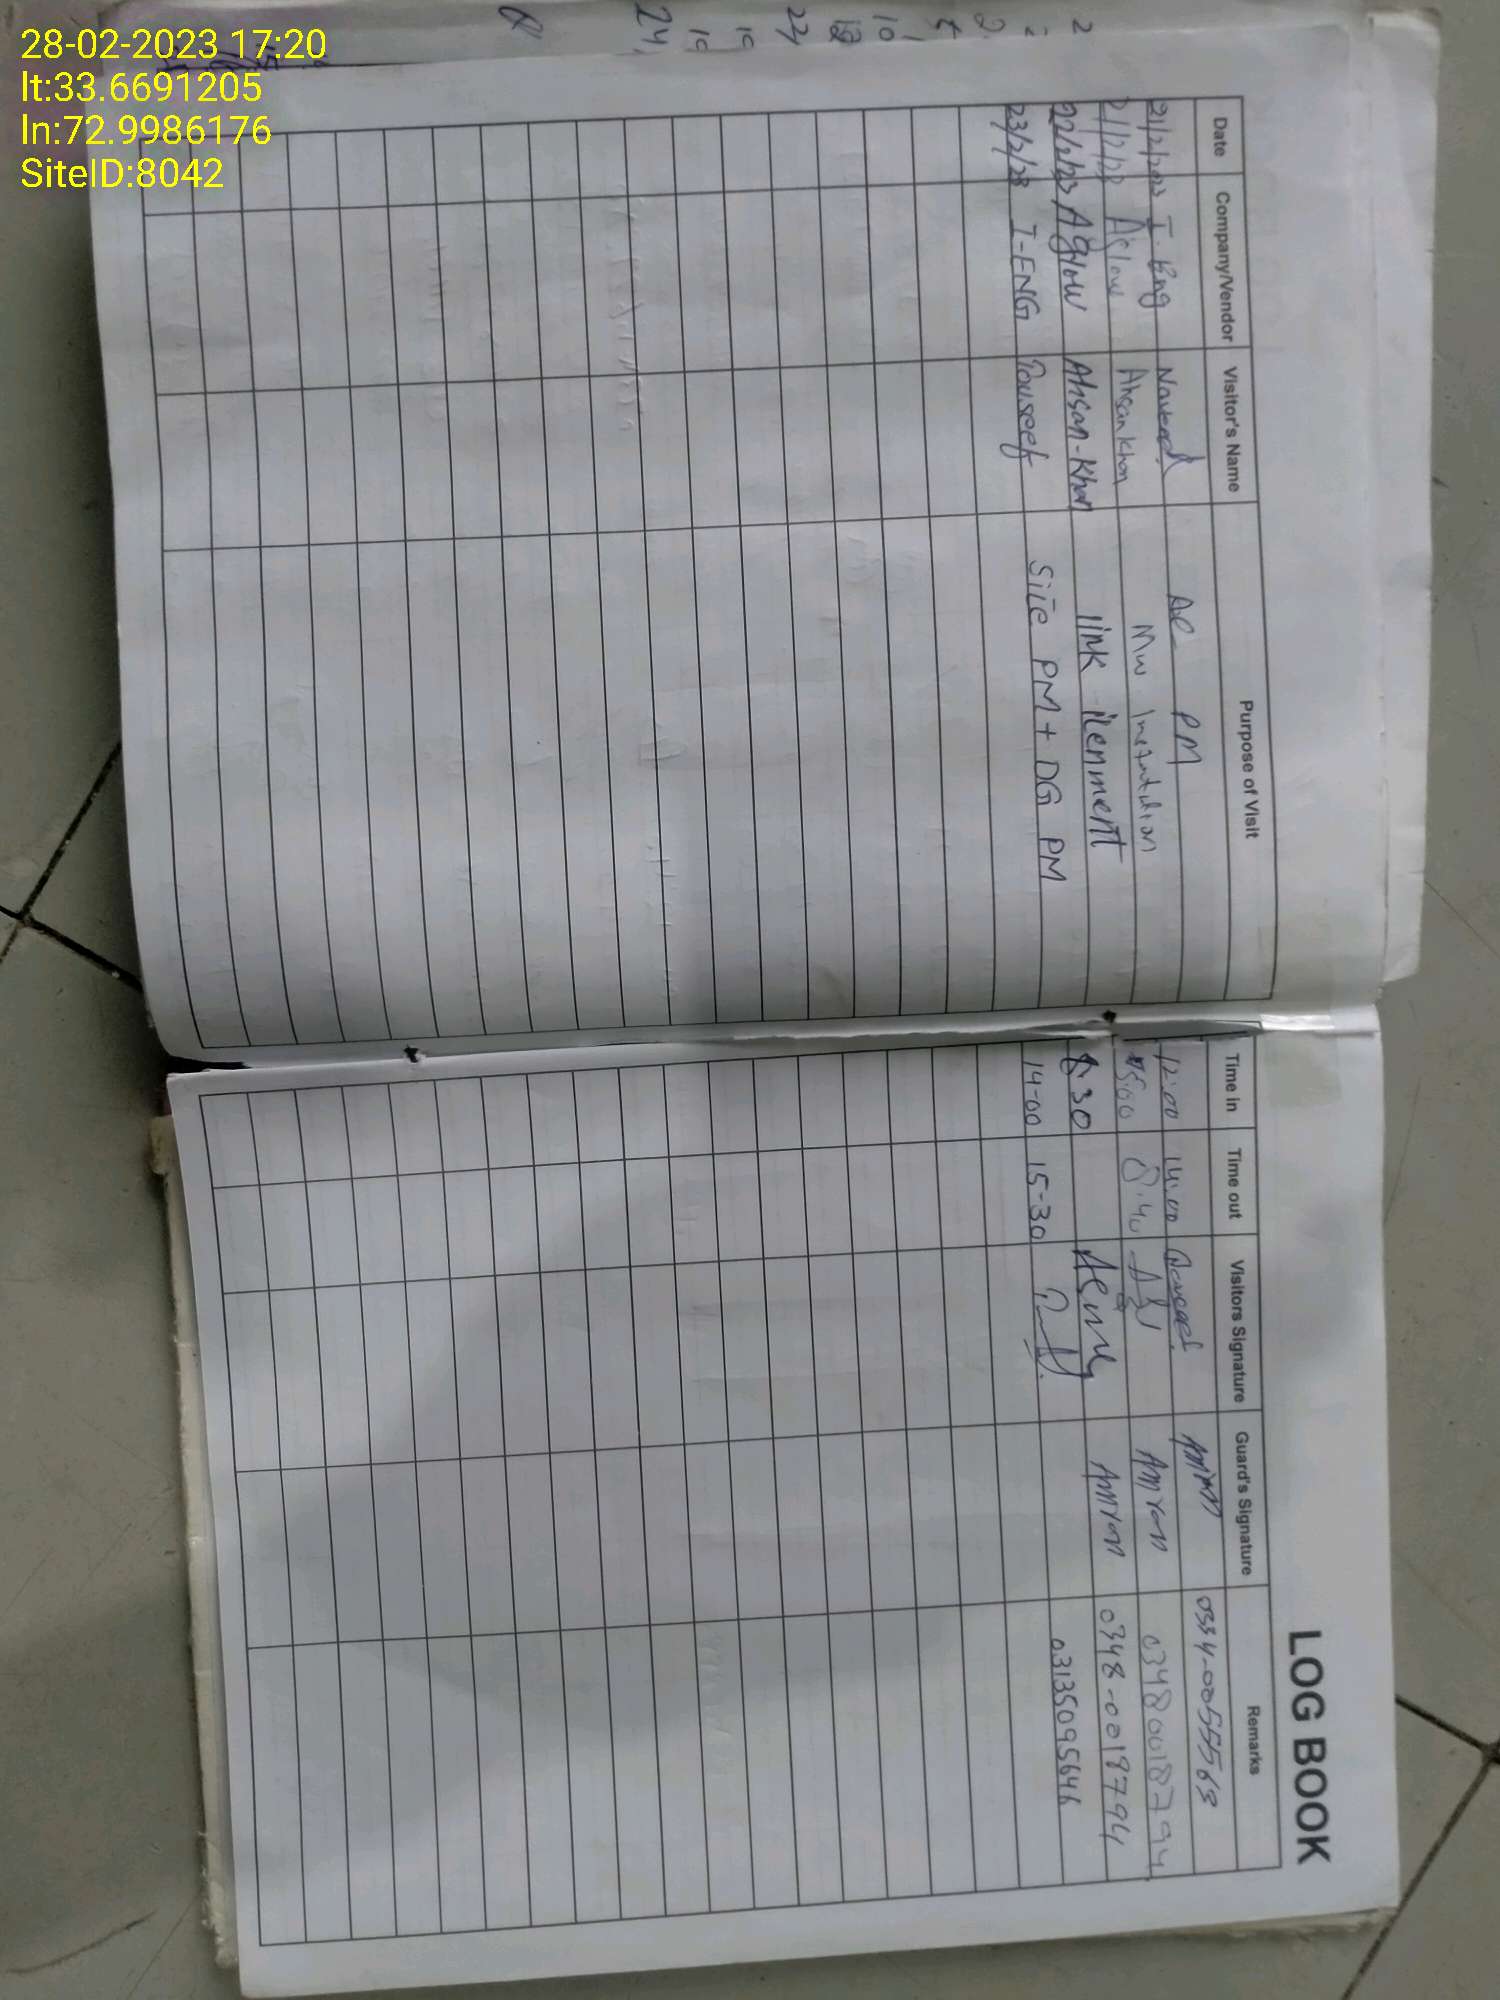 28-02-2023 17:20
lt:33.6691205
ln:72.9986176
SiteID:8042
LOG BOOK
Date Company/Vendor Visitor's Name Purpose of Visit Time in Time out Visitors Signature Guard's Signature Remarks
21/2/2023 I-Eng Naveed PM 12:00 14:00 Naveed 0334-0055563
21/2/23 Aglow Ahsan Khan Mw 8:40 Amran 03480018794
22/2/23 Aglow Ahsan-Khan link ilenment 8:30 Amran 0348-0018794
23/2/23 I-ENG Touseef Site PM + DG PM 14-00 15-30 03135095646